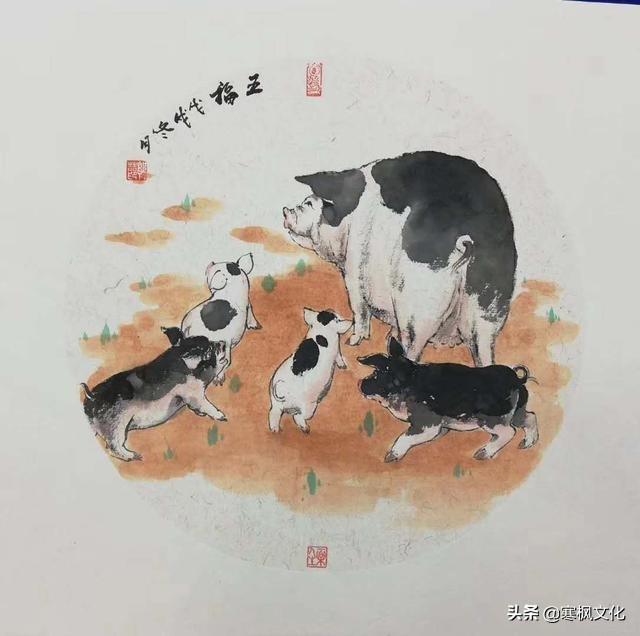 五福
戊戌冬月
头条 @寒枫文化